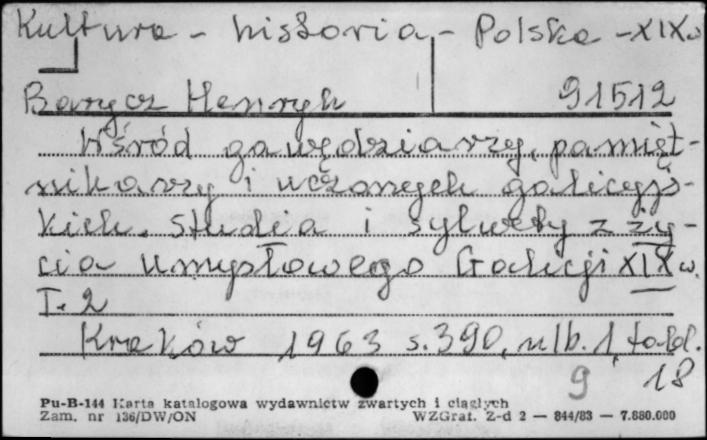 Kultura - historia - Polska - XIX w
Barycz Henryk 91512
Wśród gawędziarzy, pamięt-
nikarzy i uczonych galicyjs-
kich. Studia i sylwety z ży-
cia umysłowego Galicji XIX w.
T. 2
Kraków 1963 s. 390, nlb. 1, tabl.
9 18
Pu-B-144 Karta katalogowa wydawnictw zwartych i ciągłych
Zam. nr 136/DW/ON WZGraf. Z-d 2 — 844/83 — 7.880.000